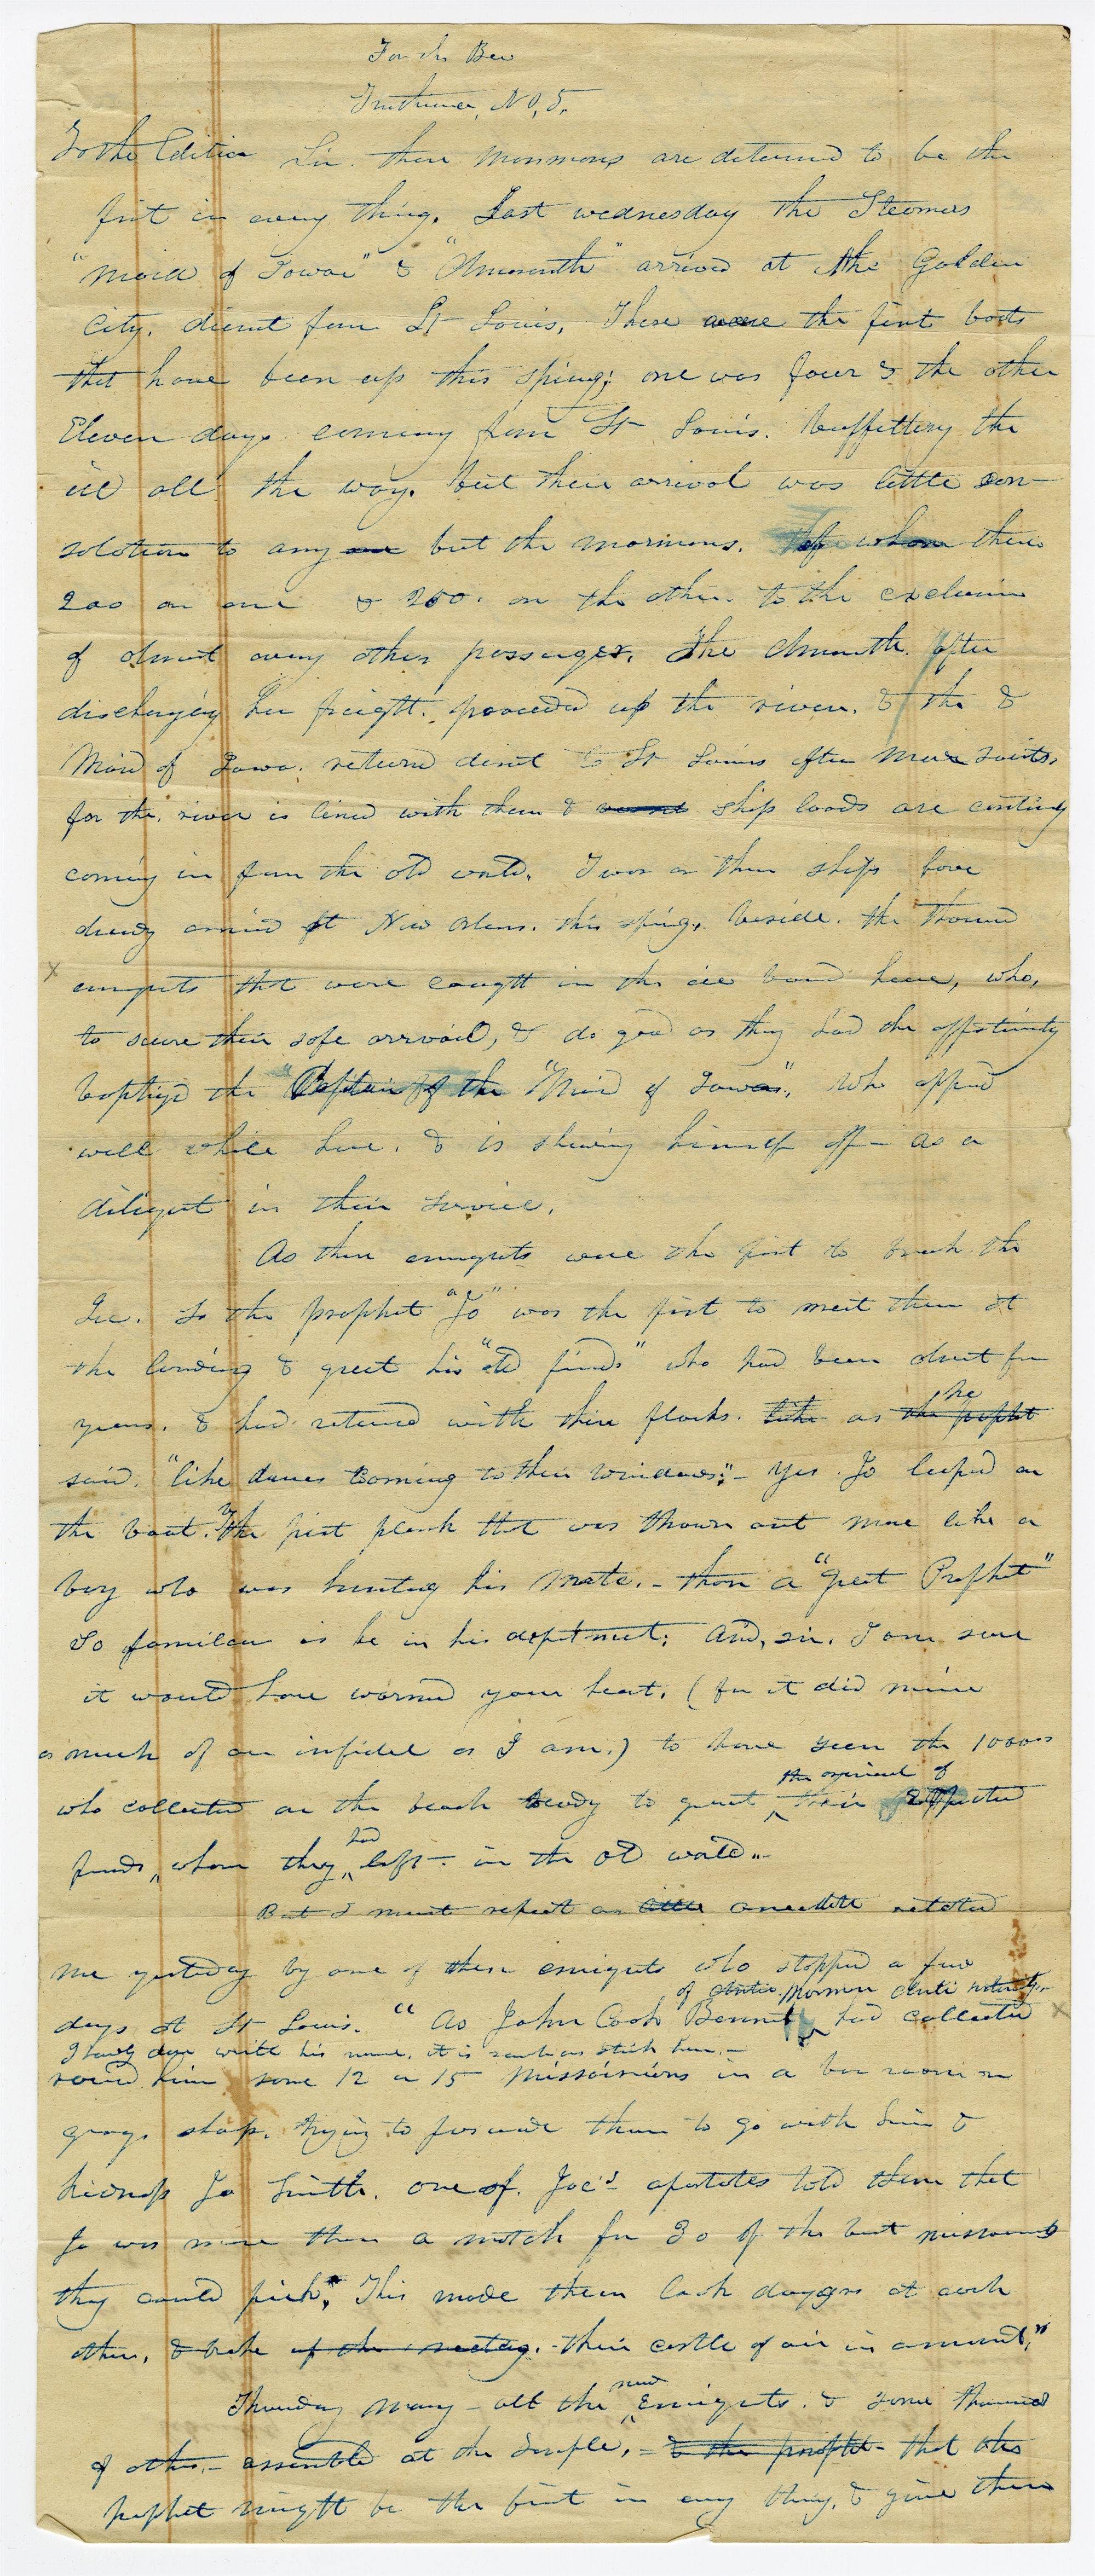 For the Bee
Truthiana, No, 5,
To the Editor Sir. these mormons are determd to be the
first in every thing. Last wednesday the Steamers
"Maid of Iowa" & "Amaranth" arrived at the Golden
City. direct from St Louis, These were the first boats
that have been up this spring; one was four & the other
Eleven days coming from St Louis. buffetting the
ice all the way. but their arrival was little con-
solation to any one but the mormons. of whom there
200 on one & 200. on the other. to the exclusion
of almost every other passenger. The Amaranth. after
discharging her freight. proceeded up the river. & the &
Maid of Iowa. returnd direct to St Louis after more saints,
for the. river is lined with them & ship loads are contiuly
coming in from the old world. Two or three ships have
alredy arrived at New Orleans. this spring, beside. the thousand
emigrants that were caught in the ice bound here, who,
to secure their safe arrival, & do good as they had the oppertunity
baptized the Captain of the "Maid of Iowa", who appeard
well while here. & is shewing himself off— as a
diligent in their service.
As these emigrants were the first to break the
Ice. so the prophet "Joe" was the first to meet them at
the landing & greet his "old friends" who had been absent for
years. & had returned with their flocks. like as the prophet he
said. "like doves coming to their windows";— yes. Jo leaped on
the boat. by the first plank that was thrown out more like a
boy who was hunting his mate.— than a "great Prophet"
So familiar is he in his depotment; And, sir, I am sure
it would have warmed your heart. (for it did mine
as much of an infidel as I am.) to have seen the 1000s
who collected on the beach ready to greet the arrival of their expected
friends, whom they had left— in the old world.—
But I must repeat an little anecdote related
me yesterday by one of these emigrants who stopped a few
days at St Louis. "As John Cook Bennet of Anti. Mormon notority—
I hardly dare write his name, it is such as stink here.— had collected
round him some 12 or 15 Missourians in a bar room or
grog. shop. trying to persuade them to go with him &
kidnap Jo Smith. one of. Joe's apostates told them that
Jo was more than a match for 30 of the best missourians
they could pick". This made them look daggers at each
other, & broke up the meeting.— their castle of air in a moment."
Thursday many— all the new Emigrants. & some thousand
of others.— assembled at the Temple.— & the prophet— that the
prophet might be the first in every thing, & give them